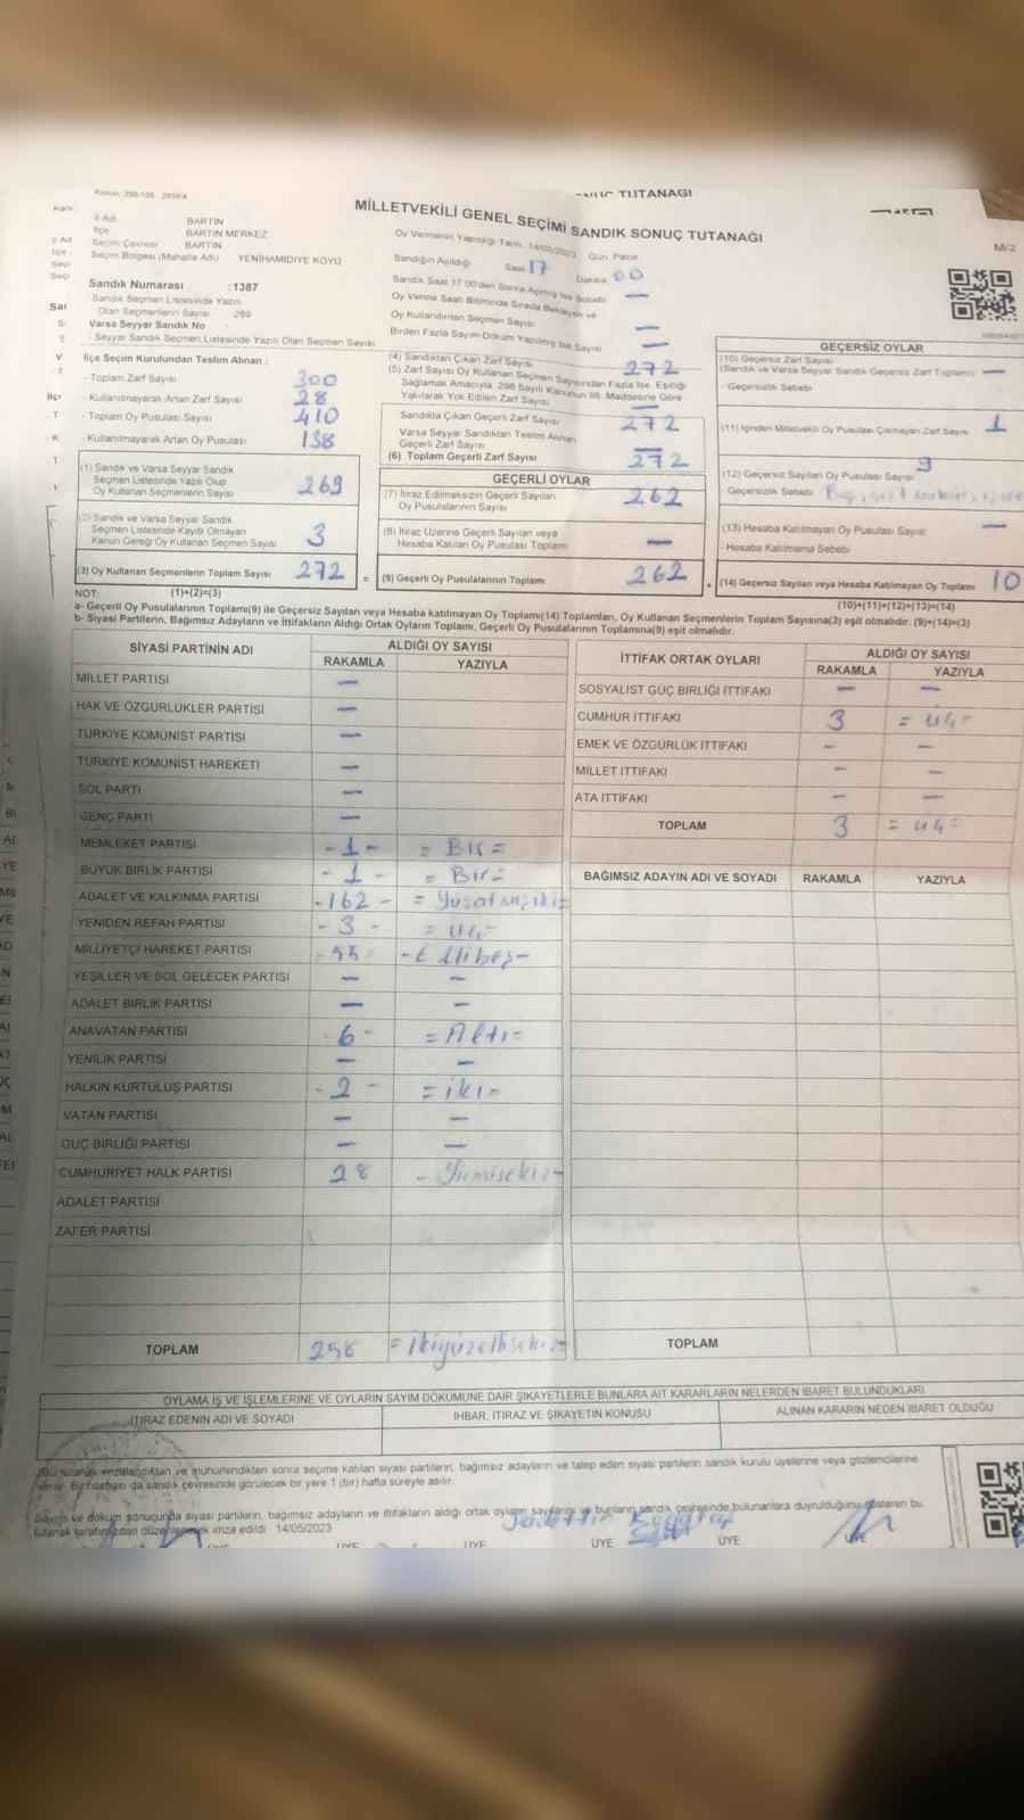 TUTANAGI
MİLLETVEKİLİ GENEL SEÇİMİ SANDIK SONUÇ TUTANAĞI
M/2
İl Adı BARTIN
İlçe BARTIN MERKEZ
Seçim Çevresi BARTIN
Seçim Bölgesi (Mahalle Adı) YENİHAMİDİYE KÖYÜ
Sandık Numarası :1387
Sandık Seçmen Listesinde Yazılı
Olan Seçmenlerin Sayısı 269
Varsa Seyyar Sandık No
Seyyar Sandık Seçmen Listesinde Yazılı Olan Seçmen Sayısı
İlçe Seçim Kurulundan Teslim Alınan :
- Toplam Zarf Sayısı 300
- Kullanılmayarak Artan Zarf Sayısı 28
- Toplam Oy Pusulası Sayısı 410
- Kullanılmayarak Artan Oy Pusulası 138
(1) Sandık ve Varsa Seyyar Sandık
Seçmen Listesinde Yazılı Olup
Oy Kullanan Seçmenlerin Sayısı 269
(2) Sandık ve Varsa Seyyar Sandık
Seçmen Listesinde Kaydı Olmayan
Kanun Gereği Oy Kullanan Seçmen Sayısı 3
(3) Oy Kullanan Seçmenlerin Toplam Sayısı 272
Oy Vermenin Yapıldığı Tarih, 14/05/2023 Gün Pazar
Sandığın Açıldığı Saat 17 Dakika 00
Sandık Saat 17.00'den Sonra Açılmış İse Sebebi —
Oy Verme Saati Bitiminde Sırada Bekleyen ve
Oy Kullandırılan Seçmen Sayısı —
Birden Fazla Sayım Döküm Yapılmış İse Sayısı —
(4) Sandıktan Çıkan Zarf Sayısı 272
(5) Zarf Sayısı Oy Kullanan Seçmen Sayısından Fazla İse, Eşitliği
Sağlamak Amacıyla, 298 Sayılı Kanunun 98. Maddesine Göre
Yakılarak Yok Edilen Zarf Sayısı —
Sandıkta Çıkan Geçerli Zarf Sayısı 272
Varsa Seyyar Sandıktan Teslim Alınan
Geçerli Zarf Sayısı —
(6) Toplam Geçerli Zarf Sayısı 272
GEÇERLİ OYLAR
(7) İtiraz Edilmeksizin Geçerli Sayılan
Oy Pusulalarının Sayısı 262
(8) İtiraz Üzerine Geçerli Sayılan veya
Hesaba Katılan Oy Pusulası Toplamı —
= (9) Geçerli Oy Pusulalarının Toplamı 262
GEÇERSİZ OYLAR
(10) Geçersiz Zarf Sayısı
(Sandık ve Varsa Seyyar Sandık Geçersiz Zarf Toplamı) —
- Geçersizlik Sebebi
(11) İçinden Milletvekili Oy Pusulası Çıkmayan Zarf Sayısı 1
(12) Geçersiz Sayılan Oy Pusulası Sayısı 9
- Geçersizlik Sebebi
(13) Hesaba Katılmayan Oy Pusulası Sayısı —
- Hesaba Katılmama Sebebi
(14) Geçersiz Sayılan veya Hesaba Katılmayan Oy Toplamı 10
NOT: (1)+(2)=(3) (10)+(11)+(12)+(13)=(14)
a- Geçerli Oy Pusulalarının Toplamı(9) ile Geçersiz Sayılan veya Hesaba katılmayan Oy Toplamı(14) Toplamları, Oy Kullanan Seçmenlerin Toplam Sayısına(3) eşit olmalıdır. (9)+(14)=(3)
b- Siyasi Partilerin, Bağımsız Adayların ve İttifakların Aldığı Ortak Oyların Toplamı, Geçerli Oy Pusulalarının Toplamına(9) eşit olmalıdır.
SİYASİ PARTİNİN ADI ALDIĞI OY SAYISI
RAKAMLA YAZIYLA
MİLLET PARTİSİ —
HAK VE ÖZGÜRLÜKLER PARTİSİ —
TÜRKİYE KOMÜNİST PARTİSİ —
TÜRKİYE KOMÜNİST HAREKETİ —
SOL PARTİ —
GENÇ PARTİ —
MEMLEKET PARTİSİ -1- = Bir =
BÜYÜK BİRLİK PARTİSİ -1- = Bir =
ADALET VE KALKINMA PARTİSİ -162- = Yüzaltmışiki=
YENİDEN REFAH PARTİSİ -3- = Üç=
MİLLİYETÇİ HAREKET PARTİSİ -55- -Ellibeş-
YEŞİLLER VE SOL GELECEK PARTİSİ — —
ADALET BİRLİK PARTİSİ — —
ANAVATAN PARTİSİ 6- =Altı=
YENİLİK PARTİSİ — —
HALKIN KURTULUŞ PARTİSİ -2- =iki=
VATAN PARTİSİ — —
GÜÇ BİRLİĞİ PARTİSİ — —
CUMHURİYET HALK PARTİSİ 28 - Yirmisekiz-
ADALET PARTİSİ
ZAFER PARTİSİ
TOPLAM 258 =İkiyüzellisekiz=
İTTİFAK ORTAK OYLARI ALDIĞI OY SAYISI
RAKAMLA YAZIYLA
SOSYALİST GÜÇ BİRLİĞİ İTTİFAKI — —
CUMHUR İTTİFAKI 3 = üç=
EMEK VE ÖZGÜRLÜK İTTİFAKI — —
MİLLET İTTİFAKI — —
ATA İTTİFAKI — —
TOPLAM 3 = üç=
BAĞIMSIZ ADAYIN ADI VE SOYADI RAKAMLA YAZIYLA
TOPLAM
OYLAMA İŞ VE İŞLEMLERİNE VE OYLARIN SAYIM DÖKÜMÜNE DAİR ŞİKAYETLERLE BUNLARA AİT KARARLARIN NELERDEN İBARET BULUNDUKLARI
İTİRAZ EDENİN ADI VE SOYADI İHBAR, İTİRAZ VE ŞİKAYETİN KONUSU ALINAN KARARIN NEDEN İBARET OLDUĞU
imzalandıktan ve mühürlendikten sonra seçime katılan siyasi partilerin, bağımsız adayların ve talep eden siyasi partilerin sandık kurulu üyelerine veya gözlemcilerine
da sandık çevresinde görülecek bir yere 1 (bir) hafta süreyle asılır.
ve döküm sonucunda siyasi partilerin, bağımsız adayların ve ittifakların aldığı ortak oyların sayılarını ve bunların sandık çevresinde bulunanlara duyrulduğunu gösteren bu
tutanak tarafımızdan düzenlenerek imza edildi 14/05/2023
ÜYE ÜYE ÜYE ÜYE ÜYE